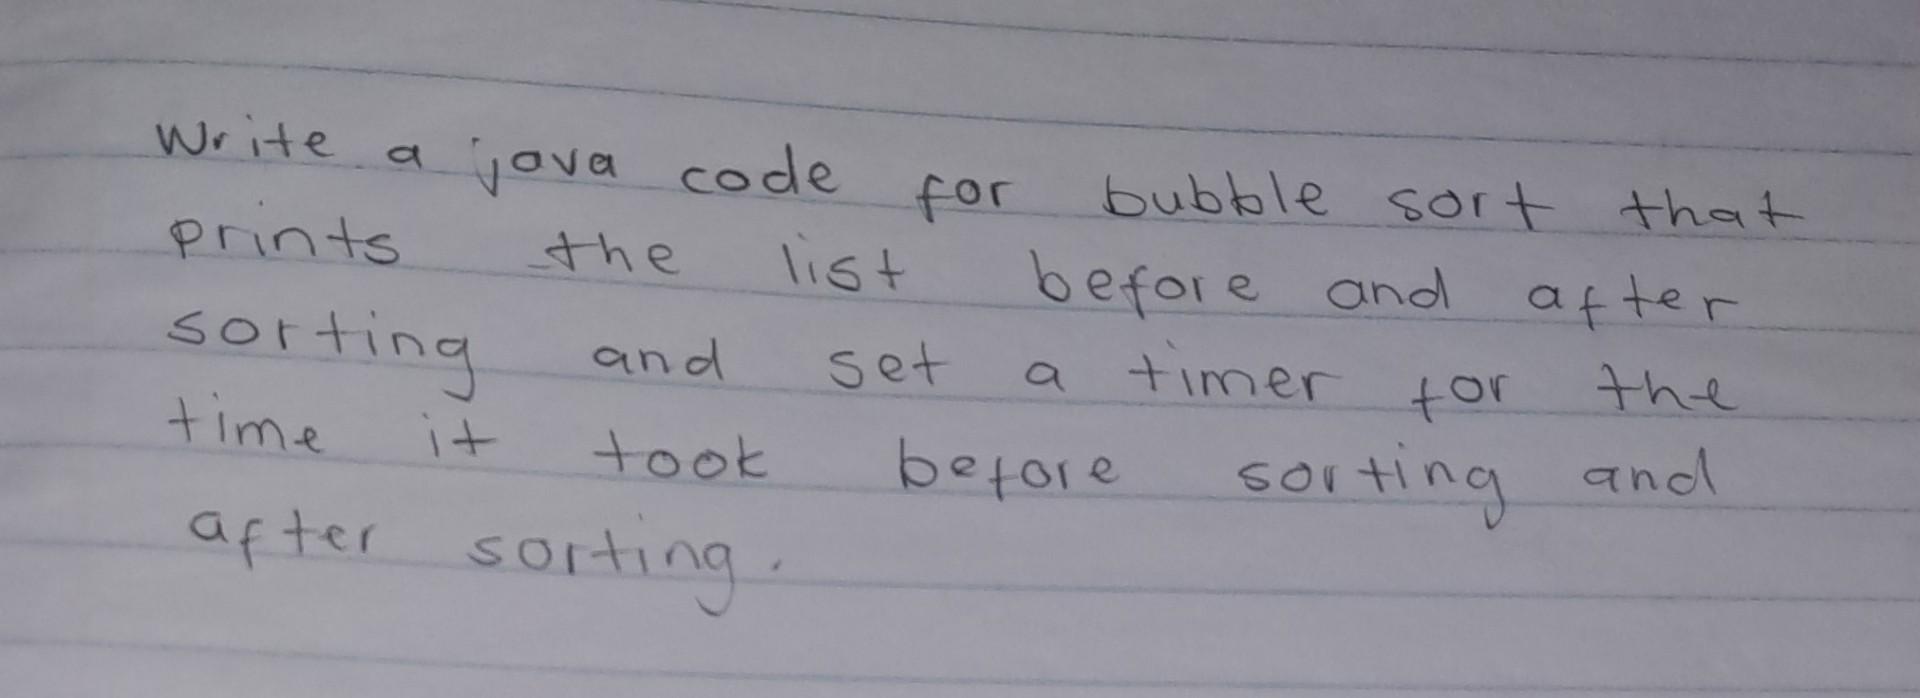 Write a java code for bubble sort that
prints the list before and after
sorting and set a timer for the
time it took before sorting and
after sorting.